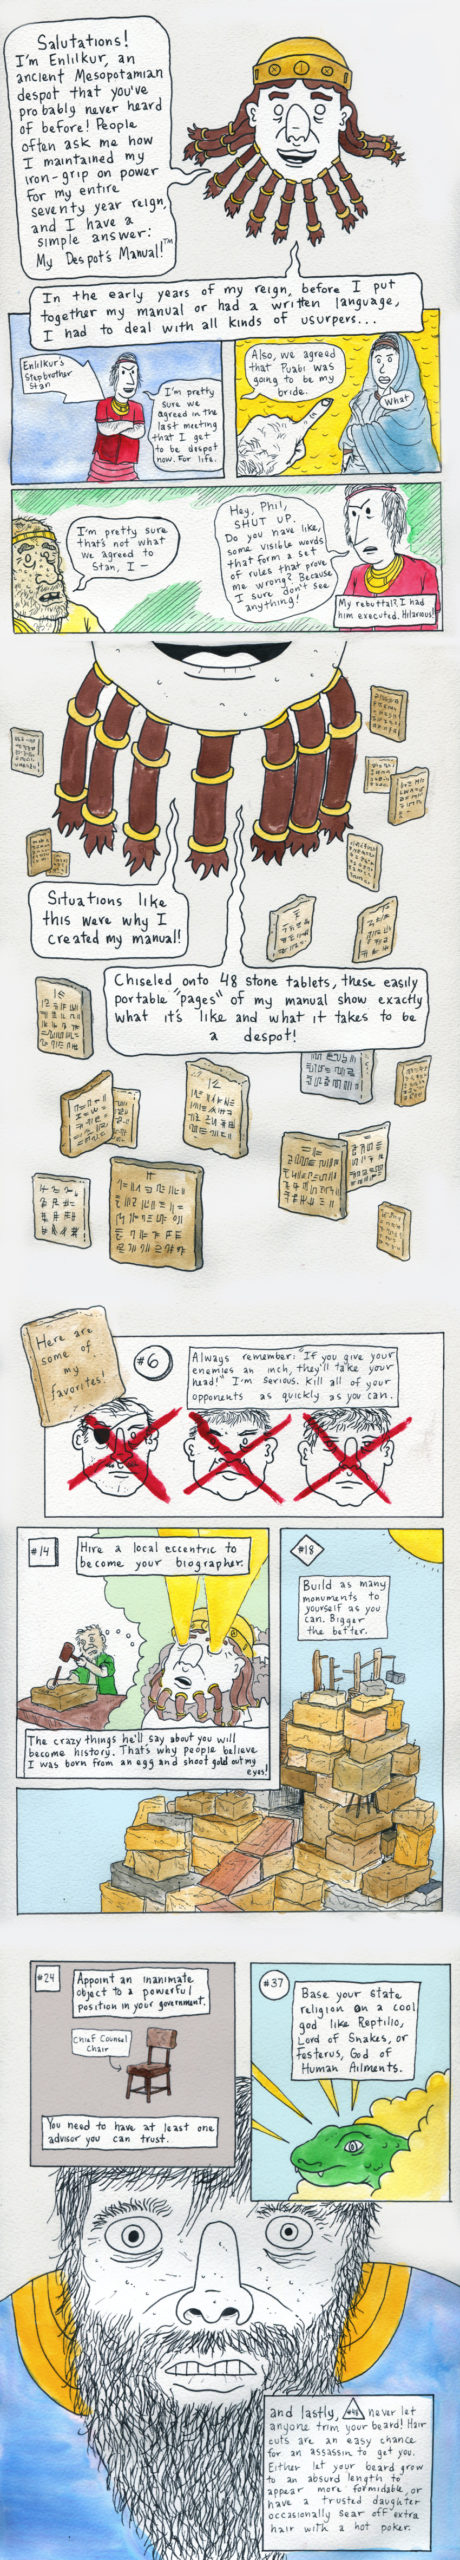 Salutations!
I'm Enlilkur, an
ancient Mesopotamian
despot that you've
probably never heard
of before! People
often ask me how
I maintained my
iron-grip on power
for my entire
seventy year reign,
and I have a
simple answer:
My Despot's Manual!™
In the early years of my reign, before I put
together my manual or had a written language,
I had to deal with all kinds of usurpers...
Enlilkur's
Stepbrother
Stan
I'm pretty
sure we
agreed in the
last meeting
that I get
to be despot
now. For life.
Also, we agreed
that Puabi was
going to be my
bride.
What
I'm pretty sure
that's not what
we agreed to
Stan, I —
Hey, Phil,
SHUT UP.
Do you have like,
some visible words
that form a set
of rules that prove
me wrong? Because
I sure don't see
anything!
My rebuttal? I had
him executed. Hilarious!
Situations like
this were why I
created my manual!
Chiseled onto 48 stone tablets, these easily
portable "pages" of my manual show exactly
what it's like and what it takes to be
a despot!
Here are
some of
my
favorites!
#6
Always remember: "If you give your
enemies an inch, they'll take your
head!" I'm serious. Kill all of your
opponents as quickly as you can.
#14
Hire a local eccentric to
become your biographer.
The crazy things he'll say about you will
become history. That's why people believe
I was born from an egg and shoot gold out my
eyes!
#18
Build as many
monuments to
yourself as you
can. Bigger
the better.
#24
Appoint an inanimate
object to a powerful
position in your government.
Chief Counsel
Chair
You need to have at least one
advisor you can trust.
#37
Base your state
religion on a cool
god like Reptillo,
Lord of Snakes, or
Festerus, God of
Human Ailments.
and lastly, #48 never let
anyone trim your beard! Hair
cuts are an easy chance
for an assassin to get you.
Either let your beard grow
to an absurd length to
appear more formidable, or
have a trusted daughter
occasionally sear off extra
hair with a hot poker.